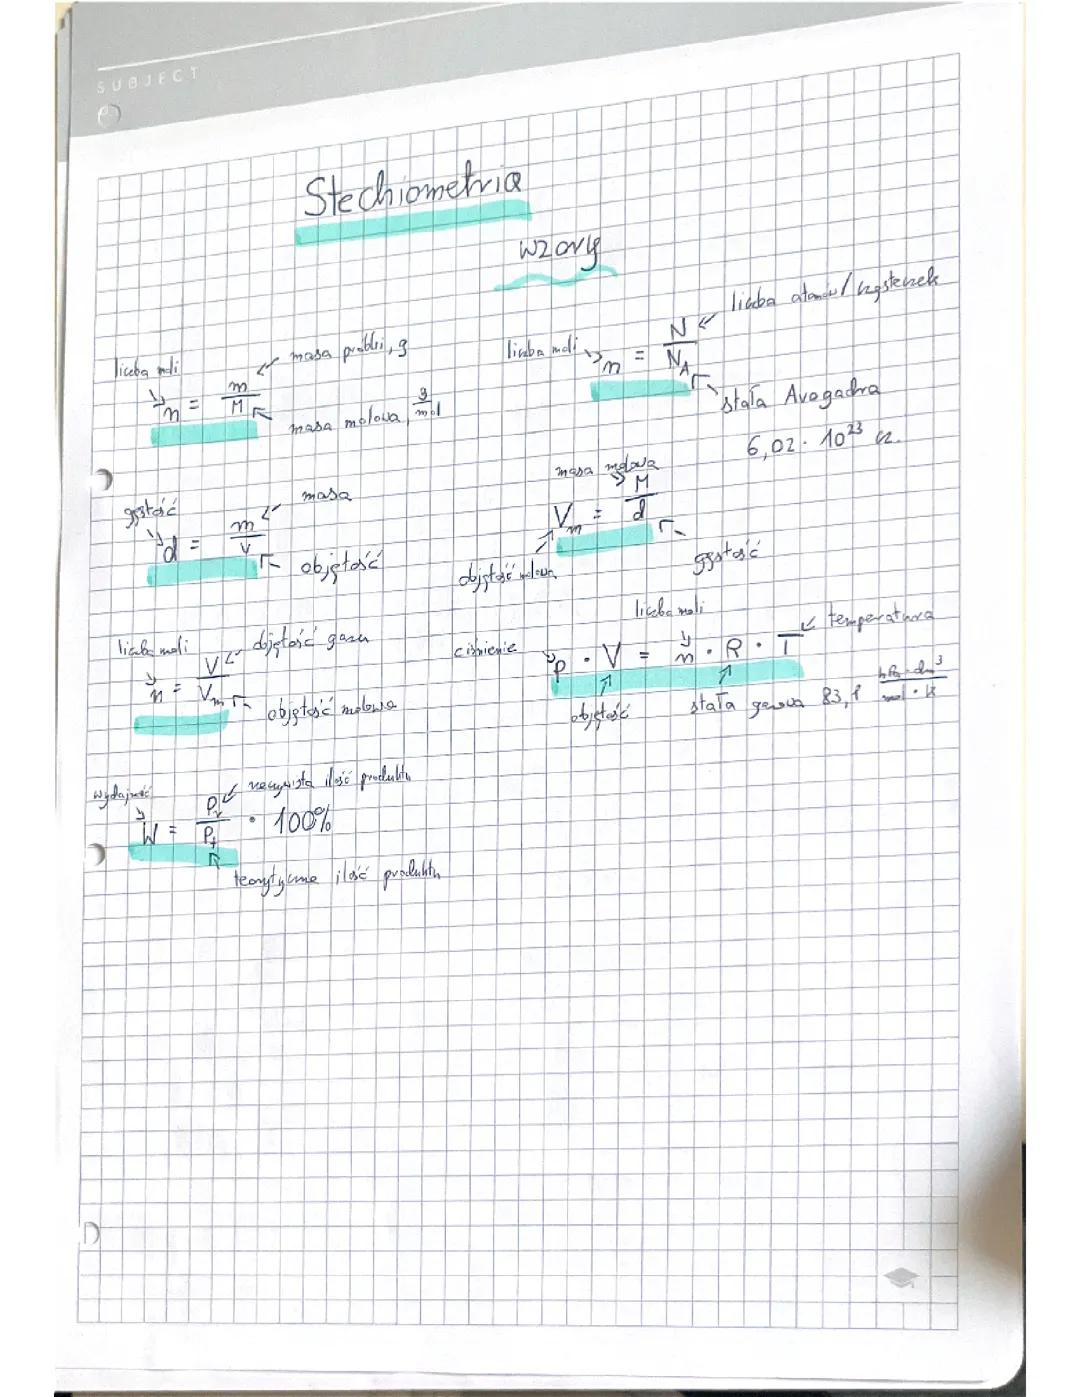 SUBJECT
Stechiometria
wzory
liczba moli
n = m / M
masa próbki, g
masa molowa, g/mol
liczba moli
n = N / N_A
liczba atomów / cząsteczek
stała Avogadra
6,02 · 10²³ cz.
gęstość
d = m / v
masa
objętość
masa molowa
V_m = M / d
objętość molowa
gęstość
liczba moli
n = V / V_m
objętość gazu
objętość molowa
liczba moli
ciśnienie
p · V = n · R · T
temperatura
objętość
stała gazowa 83,1 hPa · dm³ / mol · K
wydajność
W = P_r / P_t · 100%
rzeczywista ilość produktu
teorytyczna ilość produktu